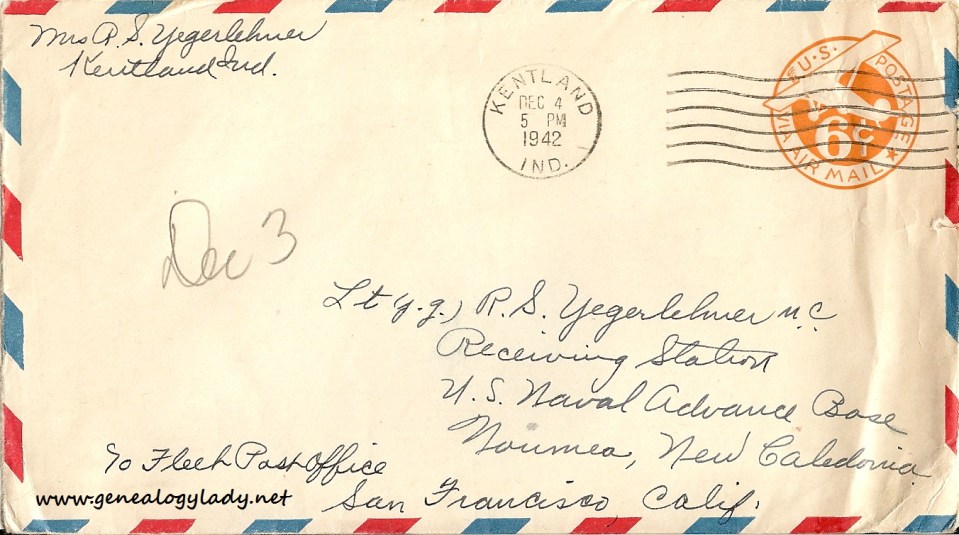 Mrs R. S. Yegerlehner
Kentland Ind.
KENTLAND
DEC 4
5 PM
1942
IND.
U.S. POSTAGE
6¢
VIA AIR MAIL
Dec 3
Lt (j.g.) R. S. Yegerlehner
Receiving Station
U. S. Naval Advance Base
Noumea, New Caledonia
c/o Fleet Post Office
San Francisco, Calif.
www.genealogylady.net